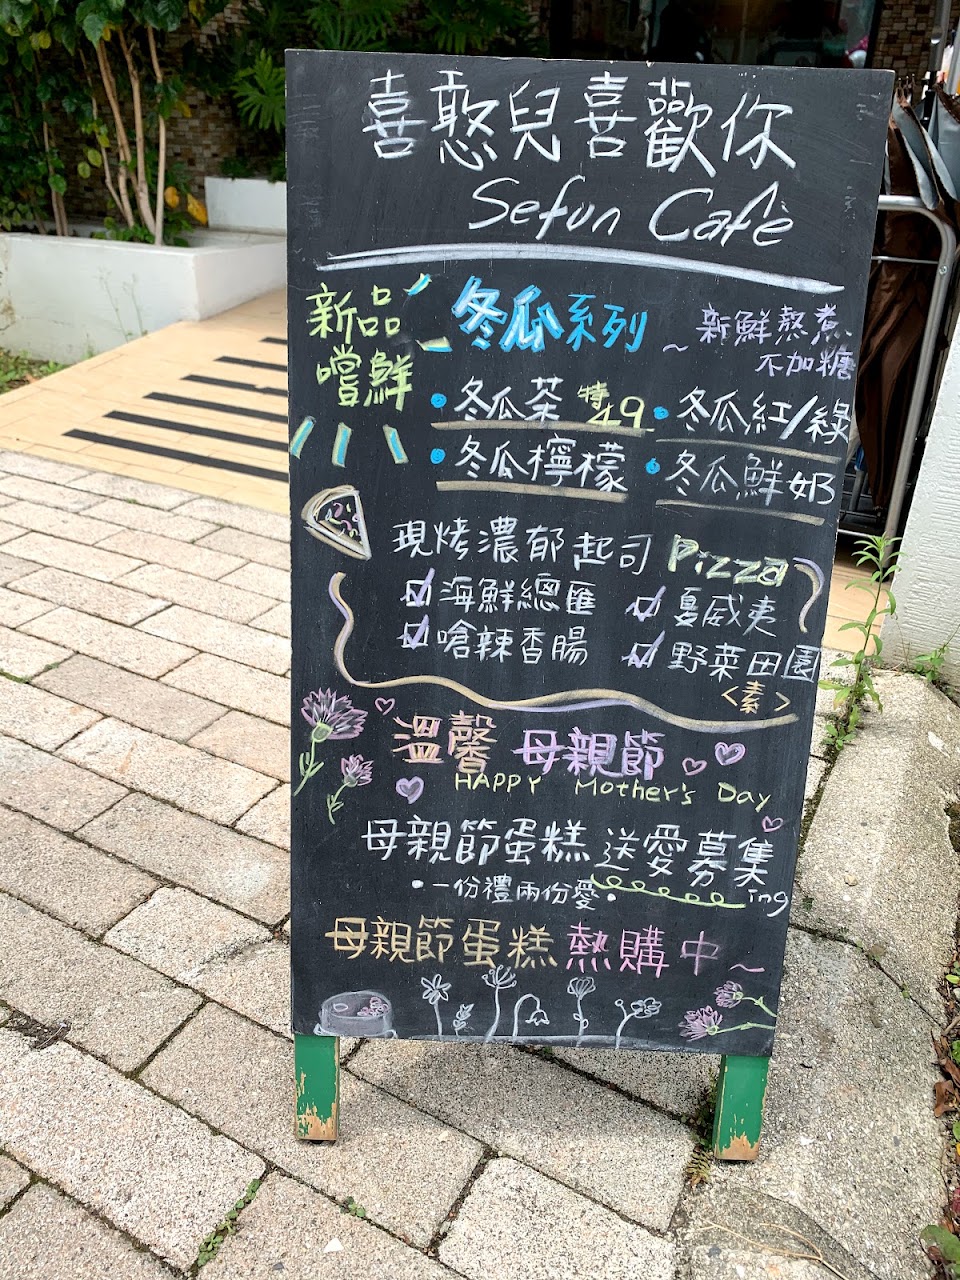 喜憨兒喜歡你
Sefun Cafe
新品
嚐鮮
冬瓜系列
~新鮮熬煮
不加糖
•冬瓜茶 特49
•冬瓜紅/綠
•冬瓜檸檬
•冬瓜鮮奶
現烤濃郁起司Pizza
☑海鮮總匯
☑夏威夷
☑嗆辣香腸
☑野菜田園
<素>
溫馨母親節
HAPPY Mother's Day
母親節蛋糕送愛募集ing
•一份禮兩份愛•
母親節蛋糕熱購中~